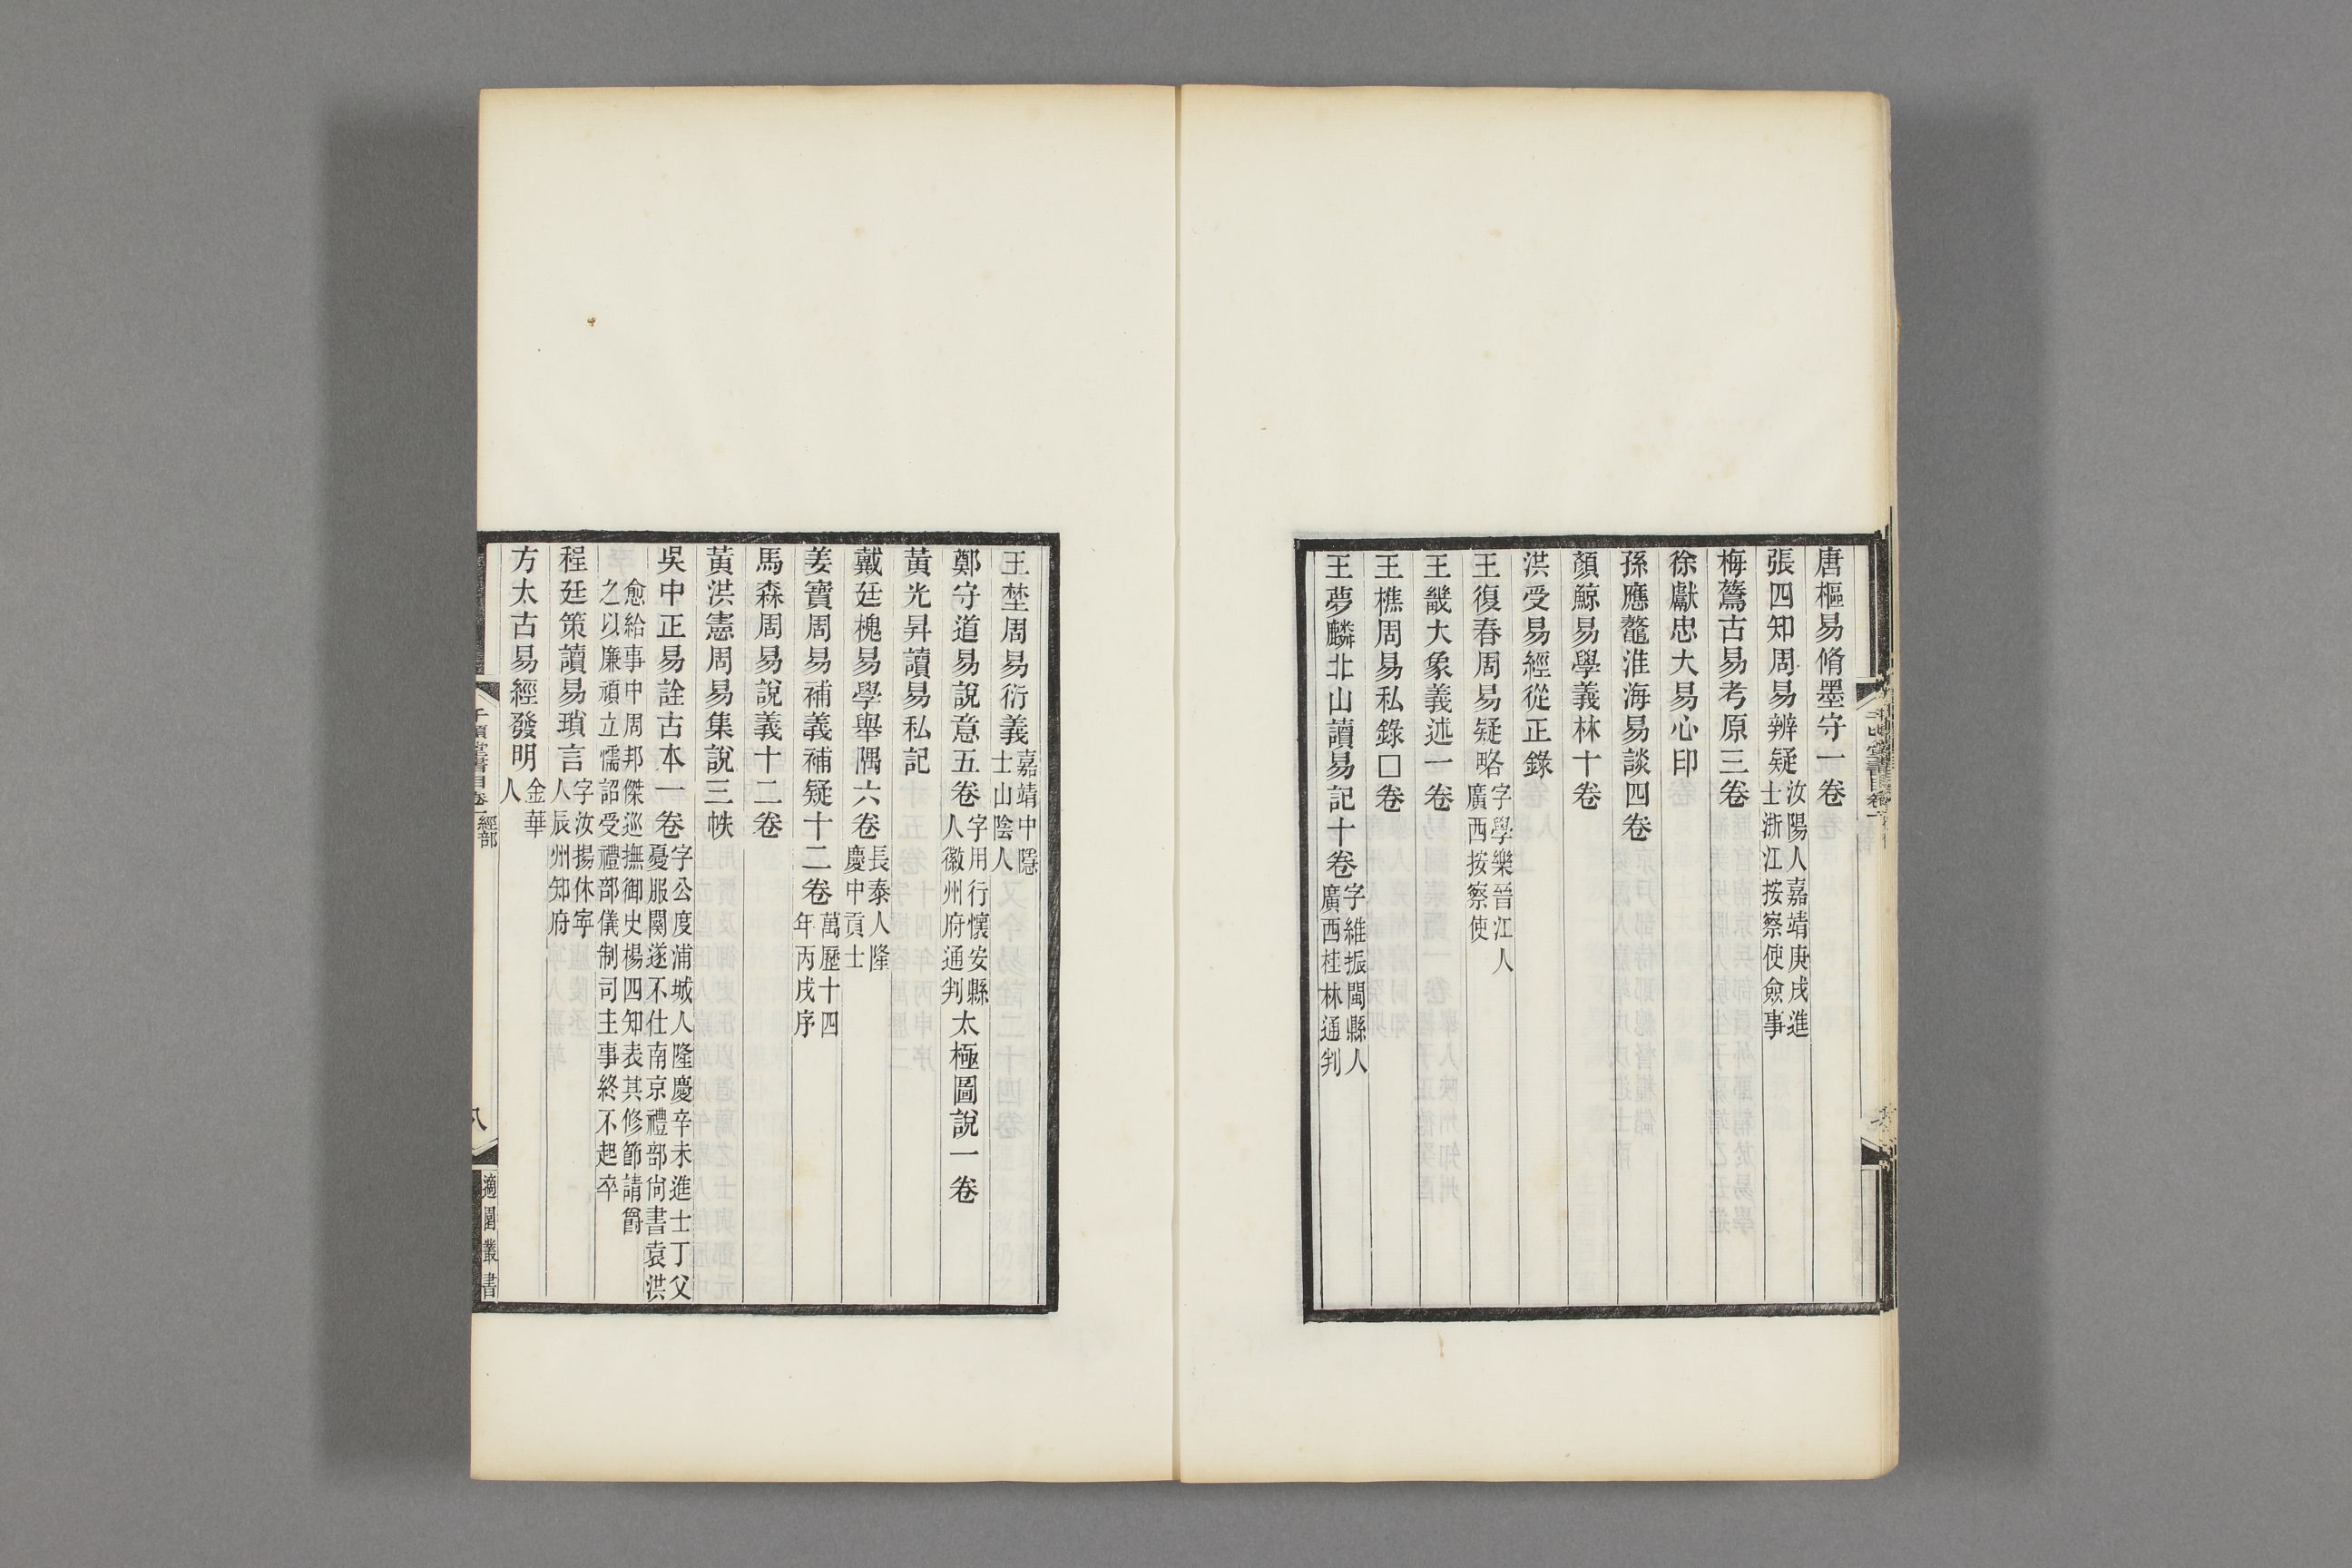 唐樞易脩墨守一卷
張四知周易辨疑汝陽人嘉靖庚戌進士浙江按察使僉事
梅鷟古易考原三卷
徐獻忠大易心印
孫應鼇淮海易談四卷
顏鯨易學義林十卷
洪受易經從正錄
王復春周易疑略字學樂晉江人廣西按察使
王畿大象義述一卷
王樵周易私錄□卷
王夢麟北山讀易記十卷字維振閩縣人廣西桂林通判
王埜周易衍義嘉靖中隱士山陰人
鄭守道易說意五卷字用行懷安縣人徽州府通判太極圖說一卷
黃光昇讀易私記
戴廷槐易學舉隅六卷長泰人隆慶中貢士
姜寶周易補義補疑十二卷萬歷十四年丙戌序
馬森周易說義十二卷
黃洪憲周易集說三帙
吳中正易詮古本一卷字公度浦城人隆慶辛未進士丁父憂服闋遂不仕南京禮部尙書袁洪
愈給事中周邦傑巡撫御史楊四知表其修節請爵之以廉頑立懦詔受禮部儀制司主事終不起卒
程廷策讀易瑣言字汝揚休寧人辰州知府
方太古易經發明金華人
千頃堂書目卷一經部
八
適園叢書